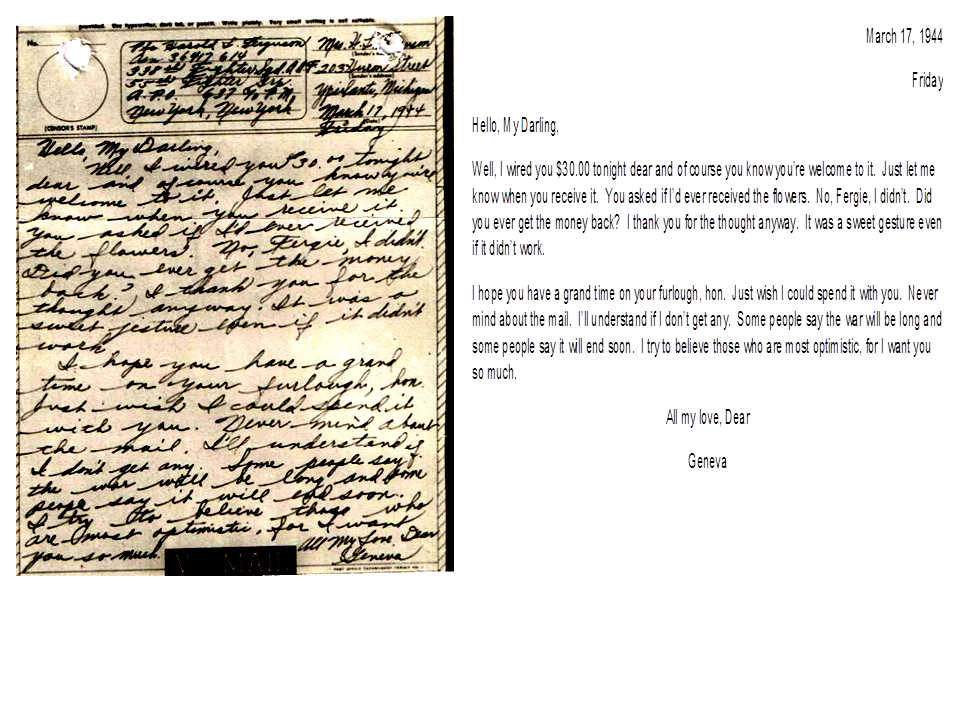 provided. Use typewriter, dark ink, or pencil. Write plainly. Very small writing is not suitable.
No.
(CENSOR'S STAMP)
Pfc Harold L. Ferguson
Asn 36417614
338th Fighter Sqd. AAF
55th Fighter Grp.
A.P.O. 637 % P.M.
New York, New York
Mrs. H. L.
(Sender's name)
203 Huron Street
(Sender's address)
Ypsilanti, Michigan
March 17, 1944
(Date)
Friday
Hello, My Darling,
Well, I wired you $30.00 tonight
dear and of course you know you're
welcome to it. Just let me
know when you receive it.
You asked if I'd ever received
the flowers. No, Fergie, I didn't.
Did you ever get the money
back? I thank you for the
thought anyway. It was a
sweet jesture even if it didn't
work.
I hope you have a grand
time on your furlough, hon.
Just wish I could spend it
with you. Never mind about
the mail. I'll understand if
I don't get any. Some people say
the war will be long and some
people say it will end soon.
I try to believe those who
are most optimistic, for I want
you so much.
All My Love, Dear
Geneva
V MAIL
March 17, 1944
Friday
Hello, My Darling,
Well, I wired you $30.00 tonight dear and of course you know you're welcome to it. Just let me
know when you receive it. You asked if I'd ever received the flowers. No, Fergie, I didn't. Did
you ever get the money back? I thank you for the thought anyway. It was a sweet gesture even
if it didn't work.
I hope you have a grand time on your furlough, hon. Just wish I could spend it with you. Never
mind about the mail. I'll understand if I don't get any. Some people say the war will be long and
some people say it will end soon. I try to believe those who are most optimistic, for I want you
so much.
All my love, Dear
Geneva